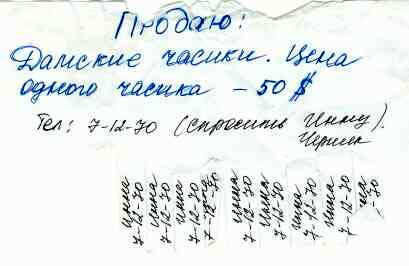 Продаю:
Дамские часики. Цена
одного часика - 50 $
Тел: 7-12-70 (спросить Инну).
Инна
7-12-70
Инна
7-12-70
Инна
7-12-70
7-12-70
Инна
7-12-70
Инна
7-12-70
Инна
7-12-70
Инна
7-12-70
-70